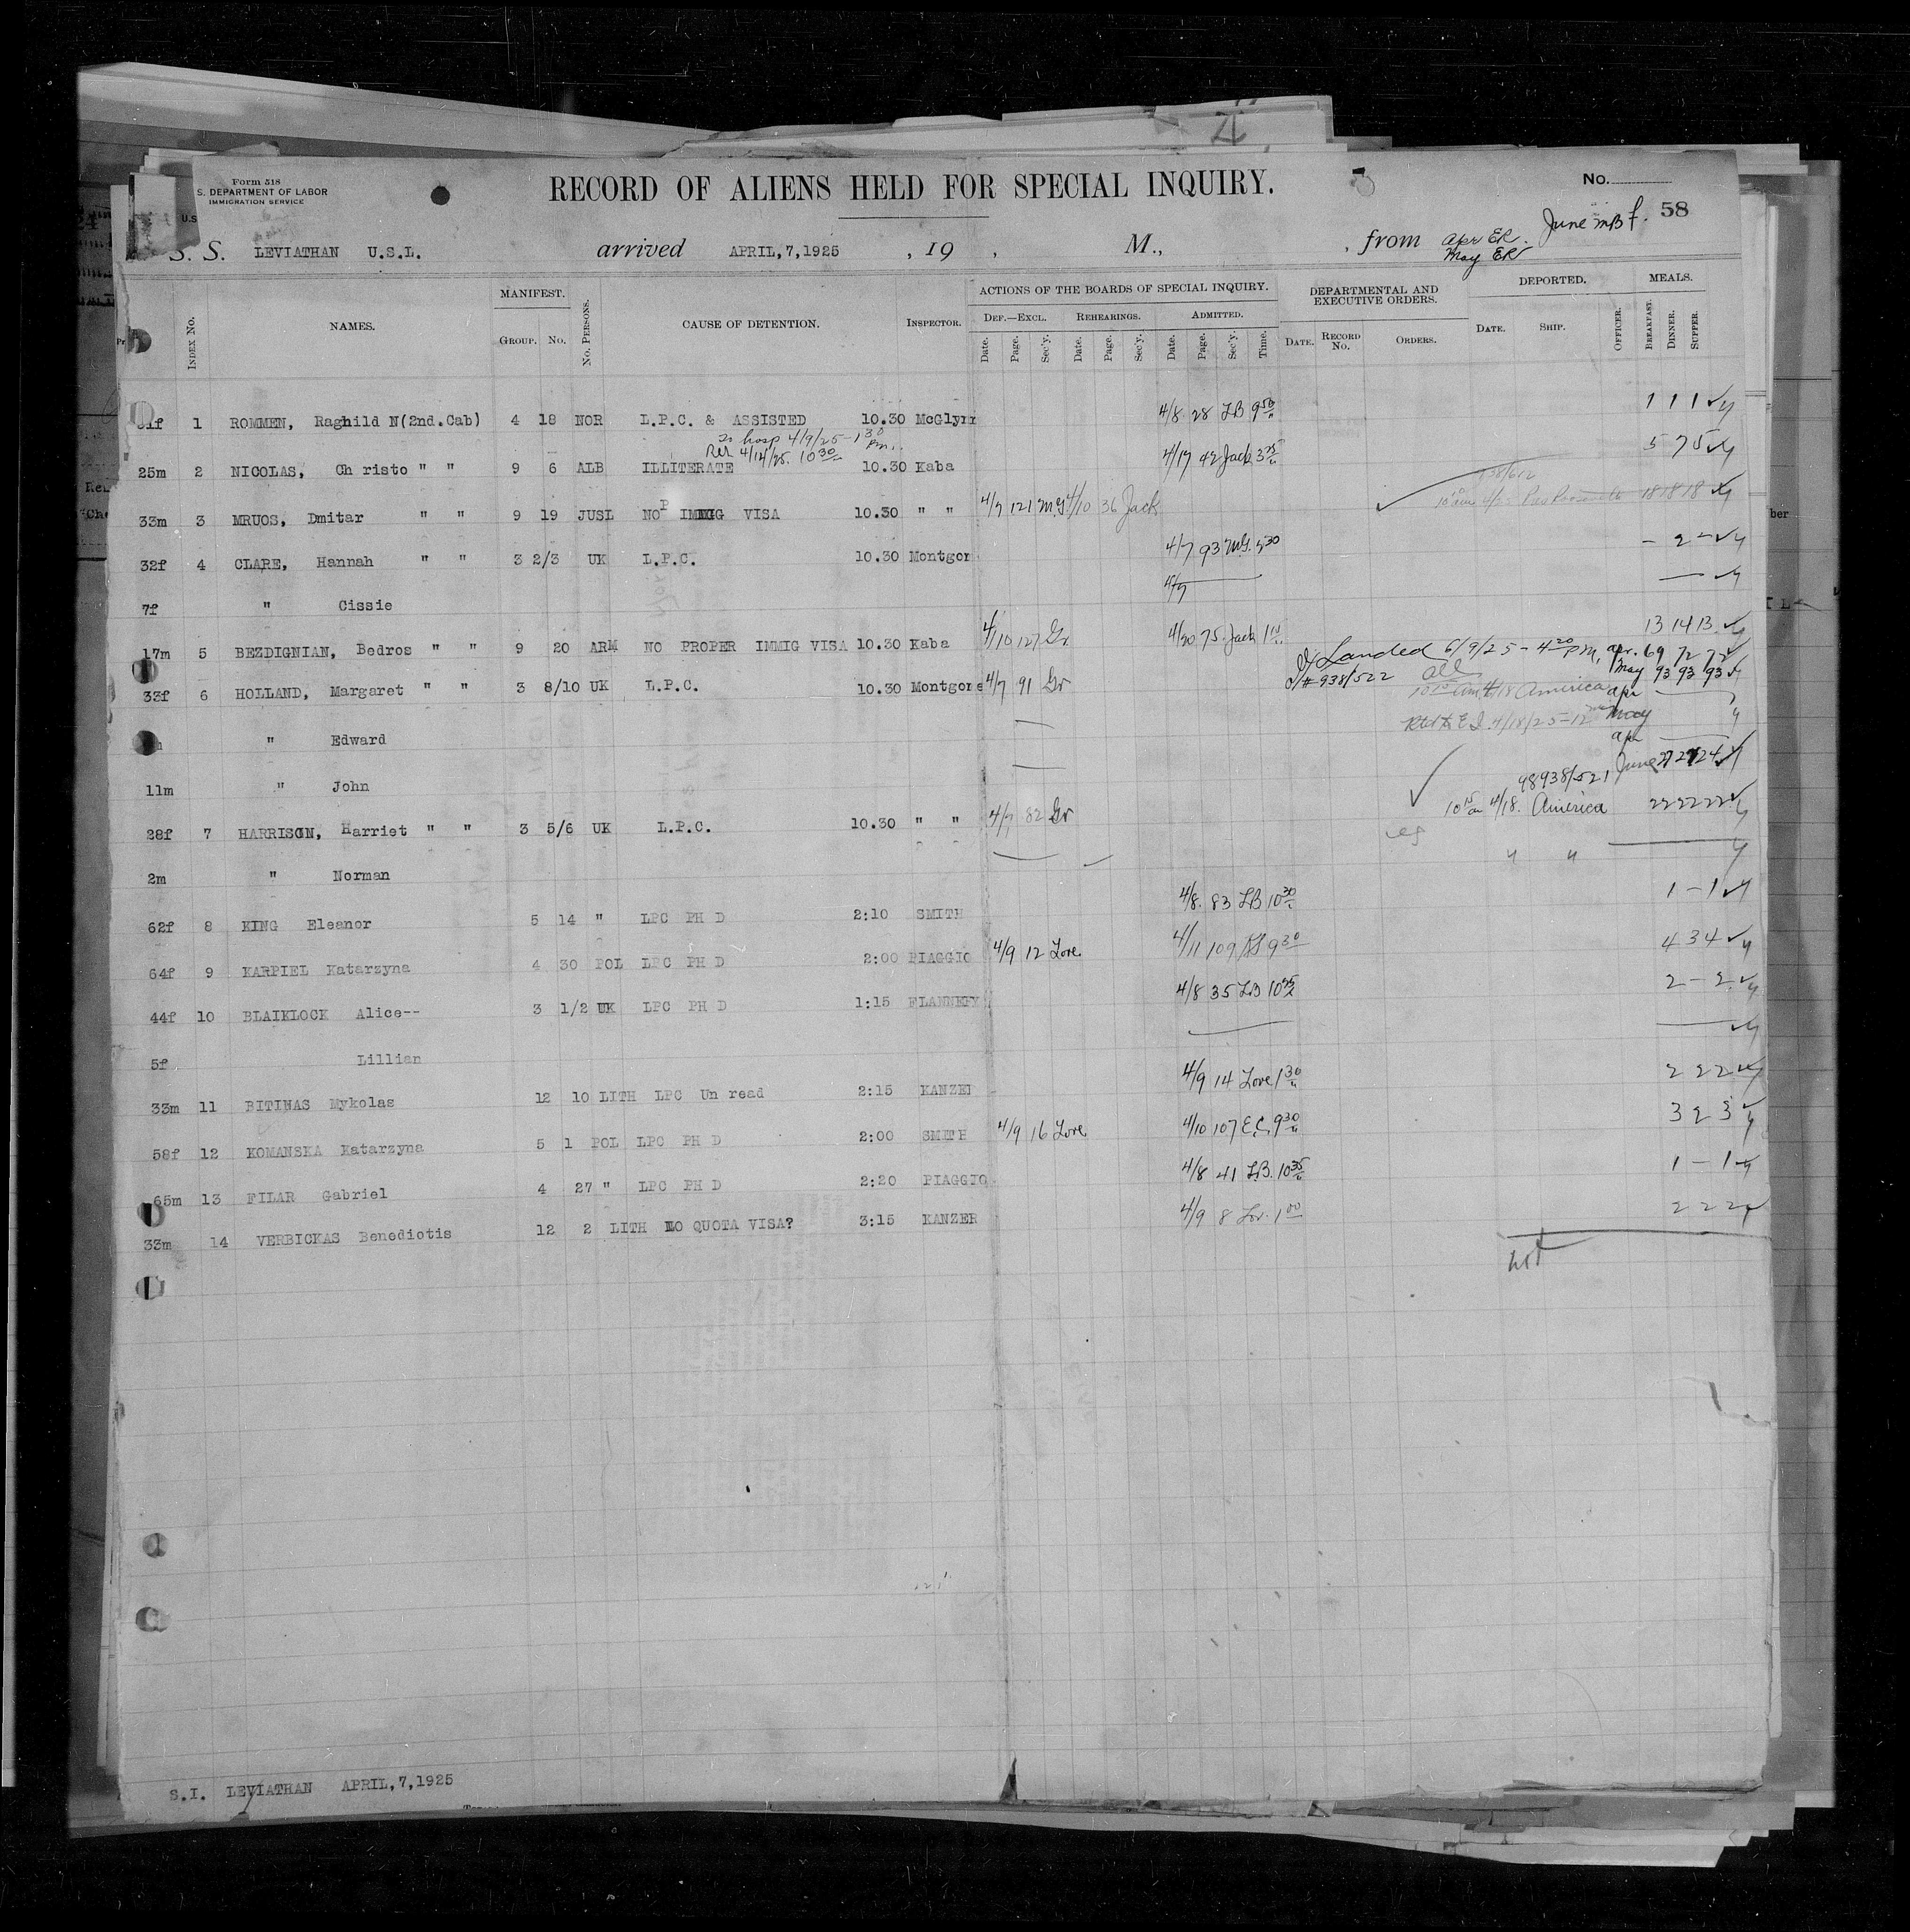 Form 518
U.S. DEPARTMENT OF LABOR
IMMIGRATION SERVICE
RECORD OF ALIENS HELD FOR SPECIAL INQUIRY.
No.
58
S. S. LEVIATHAN U.S.L. arrived APRIL,7,1925 , 19 , M., , from Apr ER. June MB f.
May ER
INDEX No. NAMES. MANIFEST. GROUP. No. No. PERSONS. CAUSE OF DETENTION. INSPECTOR. ACTIONS OF THE BOARDS OF SPECIAL INQUIRY. DEPARTMENTAL AND EXECUTIVE ORDERS. DEPORTED. MEALS.
DEF.—EXCL. REHEARINGS. ADMITTED.
Date. Page. Sec'y. Date. Page. Sec'y. Date. Page. Sec'y. Time. DATE. RECORD No. ORDERS. DATE. SHIP. OFFICER. BREAKFAST. DINNER. SUPPER.
1 ROMMEN, Raghild N(2nd.Cab) 4 18 NOR L.P.C. & ASSISTED 10.30 McGlynn 4/8 28 LB 9 50 1 1 1
To hosp 4/9/25-1 30 Pm.
Rel 4/14/25. 10 30
25m 2 NICOLAS, Ch risto " " 9 6 ALB ILLITERATE 10.30 Kaba 4/17 42 Jack 3 25 5 7 5
33m 3 MRUOS, Dmitar " " 9 19 JUSL NO P IMMIG VISA 10.30 " " 4/7 121 MG 4/10 36 Jack Pres Roosevelt 18 18 18
32f 4 CLARE, Hannah " " 3 2/3 UK L.P.C. 10.30 Montgor 4/7 93 MG. 5 30 - 2 -
7f " Cissie 4/7
17m 5 BEZDIGNIAN, Bedros " " 9 20 ARM NO PROPER IMMIG VISA 10.30 Kaba 4/10 127 Gr 4/20 75 Jack 1 10 13 14 13
Landed 6/9/25 - 4 20 PM, apr. 69 72 72
33f 6 HOLLAND, Margaret " " 3 8/10 UK L.P.C. 10.30 Montgome 4/7 91 Gr # 938/522 all May 93 93 93
10 15 am 4/18 America apr
Retd to E I. 4/18/25-12 May
" Edward
apr
11m " John June 27 27 24
98938/521
28f 7 HARRISON, Harriet " " 3 5/6 UK L.P.C. 10.30 " " 4/7 82 Gr 10 15 am 4/18. America 22 22 22
2m " Norman " "
62f 8 KING Eleanor 5 14 " LPC PH D 2:10 SMITH 4/8 83 LB 10 30 1 - 1
64f 9 KARPIEL Katarzyna 4 30 POL LPC PH D 2:00 PIAGGIO 4/9 12 Love 4/11 109 9 30 4 3 4
44f 10 BLAIKLOCK Alice-- 3 1/2 UK LPC PH D 1:15 FLANNERY 4/8 35 LB 10 35 2 - 2
5f Lillian
33m 11 BITINAS Mykolas 12 10 LITH LPC Un read 2:15 KANZER 4/9 14 Love 1 30 2 2 2
58f 12 KOMANSKA Katarzyna 5 1 POL LPC PH D 2:00 SMITH 4/9 16 Love 4/10 107 E.C. 9 30 3 2 3
65m 13 FILAR Gabriel 4 27 " LPC PH D 2:20 PIAGGIO 4/8 41 LB. 10 35 1 - 1
33m 14 VERBICKAS Benediotis 12 2 LITH NO QUOTA VISA? 3:15 KANZER 4/9 8 Lov. 1 00 2 2 2
S.I. LEVIATHAN APRIL,7,1925